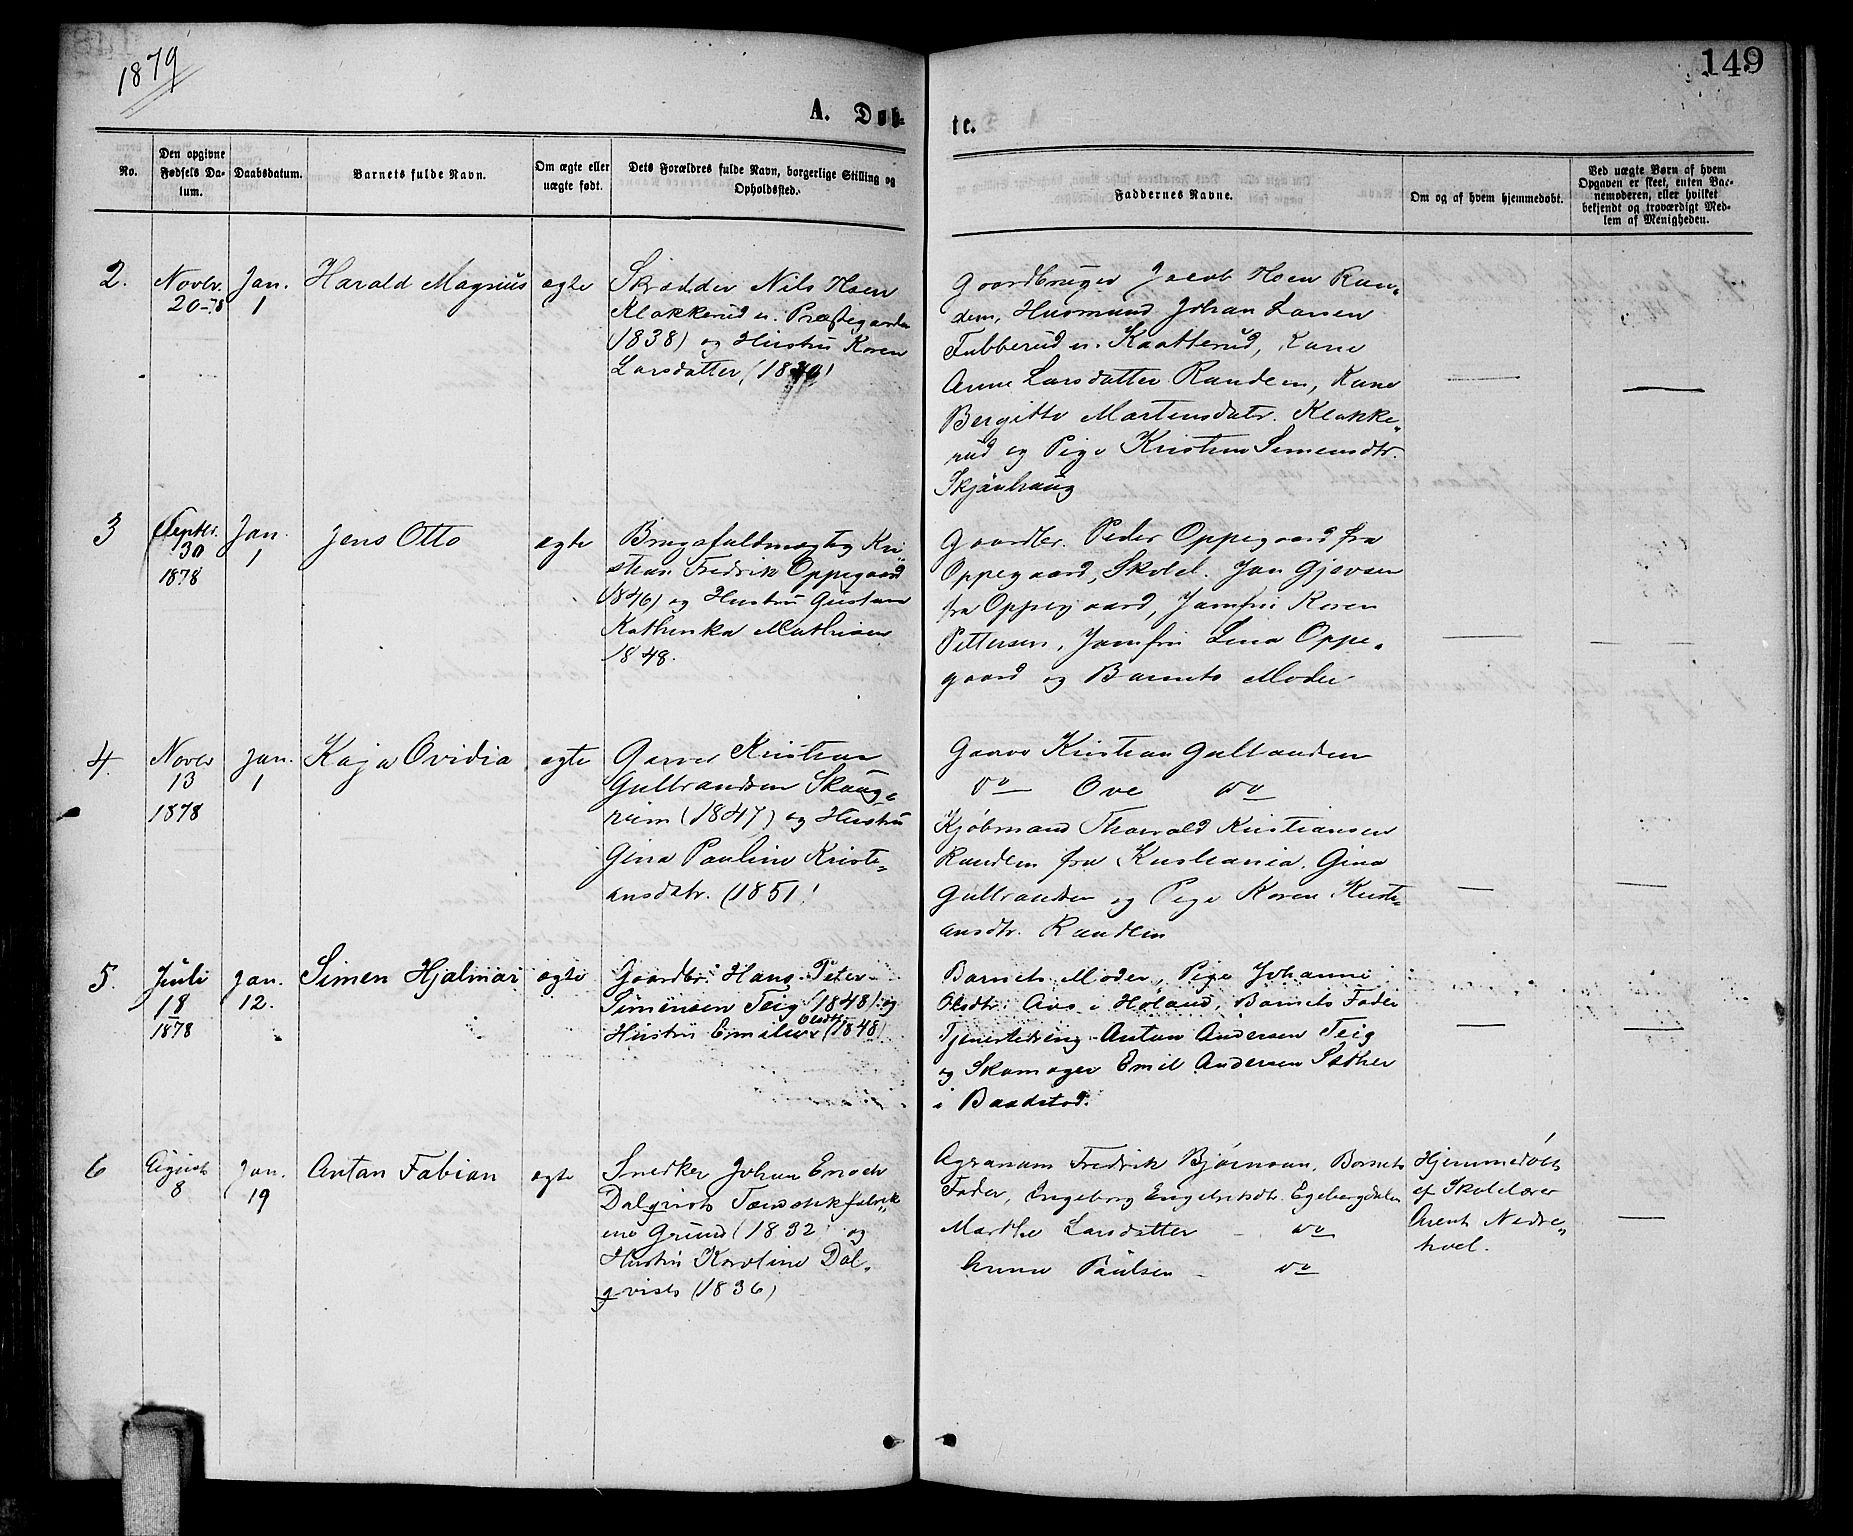 1879
149
A. Døb-
te.
No.
Den opgivne Fødsels Datum.
Daabsdatum.
Barnets fulde Navn.
Om ægte eller uægte født.
Dets Forældres fulde Navn, borgerlige Stilling og Opholdssted.
Faddernes Navne.
Om og af hvem hjemmedøbt.
Ved uægte Børn af hvem Opgaven er skeet, enten Barnemoderen, eller hvilket bekjendt og troværdigt Medlem af Menigheden.
2.
Novbr.
20-78
Jan.
1
Harald Magnus
ægte
Skrædder Nils Hoen
Klokkerud u. Præstegaarden
(1838) og Hustru Karen
Larsdatter (18
Gaardbruger Jacob Hoen Ran-
dem, Husmand Johan Larsen
Tubberud u. Kaatterud, Kone
Anne Larsdatter Randem, Kone
Bergitte Martensdatr. Klokke-
rud og Pige Kristine Simensdtr.
Skjønhaug
3
Septbr.
30
1878
Jan.
1
Jens Otto
ægte
Brugsfuldmægtig Kri-
stian Fredrik Oppegaard
(1846) og Hustru Gustava
Kathinka Mathisen
1848.
Gaardbr. Peder Oppegaard fra
Oppegaard, Skolel. Jan Gjevsen
fra Oppegaard, Jomfru Karen
Pettersen, Jomfru Lina Oppe-
gaard og Barnets Moder
4.
Novbr
13
1878
Jan.
1
Kaja Ovidia
ægte
Garver Kristian
Gulbrandsen Skaug-
rum (1847) og Hustru
Gina Pauline Kristi-
ansdatr. (1851)
Garver Kristian Gulbrandsen
do Ove do
Kjøbmand Thorvald Kristiansen
Randem fra Kristiania. Gina
Gulbrandsen og Pige Karen Kristi-
ansdtr. Randem
5.
Juli
18
1878
Jan.
12.
Simen Hjalmar
ægte
Gaardbr. Hans Peter
Simensen Teig (1848) og
Hustru Emilie Olsdtr (1848)
Barnets Moder, Pige Johanne
Olsdtr. Aas i Høland, Barnets Fader
Tjenestedreng Anton Andersen Teig
og Skomager Emil Andersen Sæther
i Baastad.
6
August
8
Jan.
19
Anton Fabian
ægte
Snedker Johan Enoch
Dalqvist Tændstikfabrik-
en Grund (1832) og
Hustru Karoline Dal-
qvist (1836)
Agronom Fredrik Bjørnson, Barnets
Fader, Ingeborg Engebretsdtr. Egebergdalen
Marthe Larsdatter do
Anne Paulsen do
Hjemmedøbt
af Skolelærer
Arent Nedre-
hvel.